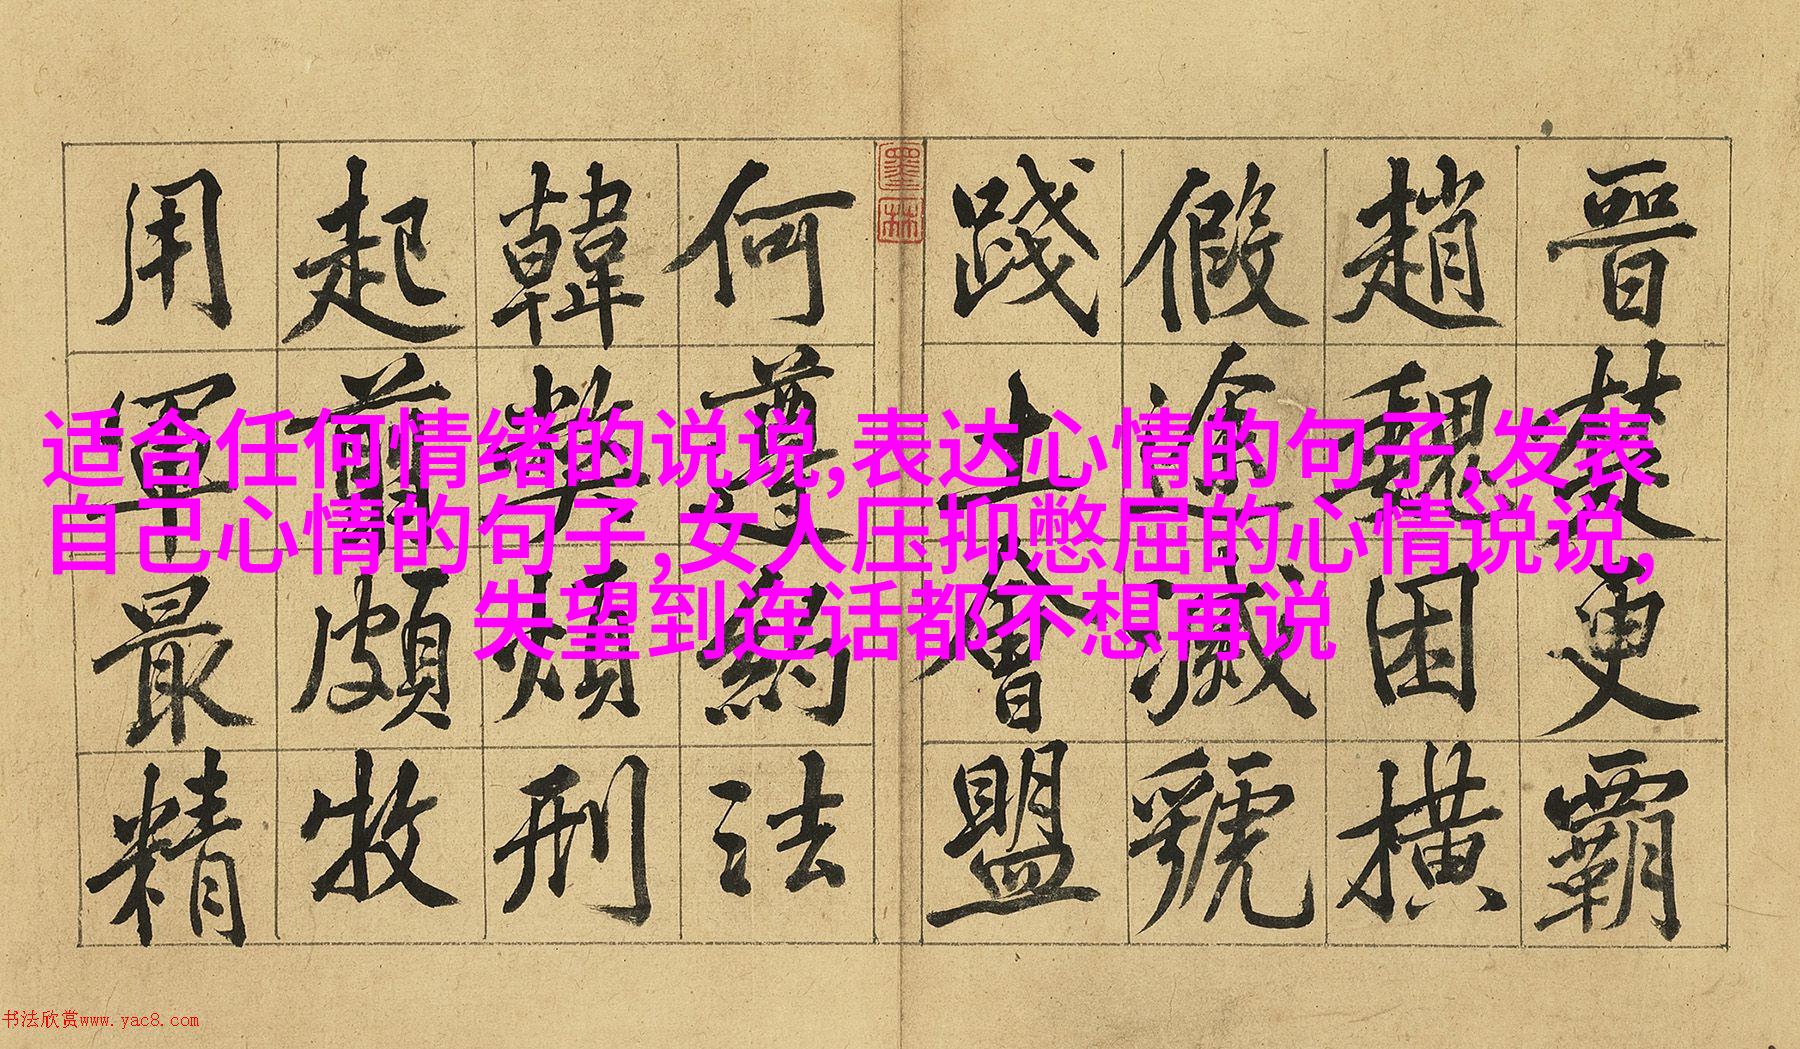 晉楚更霸
趙魏困横
假塗滅虢
踐土會盟
墨林
何遵約法
韓弊煩刑
起翦頗牧
用軍最精
适合任何情绪的说说,表达心情的句子,发表
自己心情的句子,女人压抑憋屈的心情说说,
失望到连话都不想再说
书法欣赏www.yac8.com